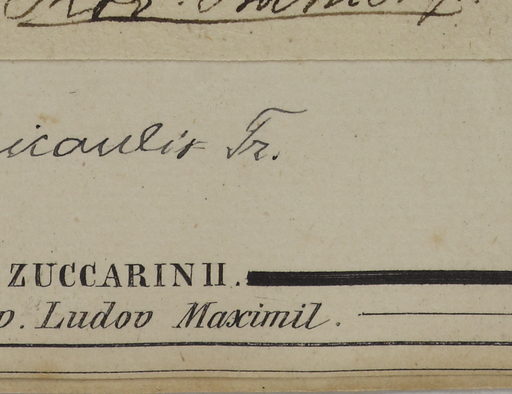 icaulis Tr.
ZUCCARINII.
p. Ludov Maximil.